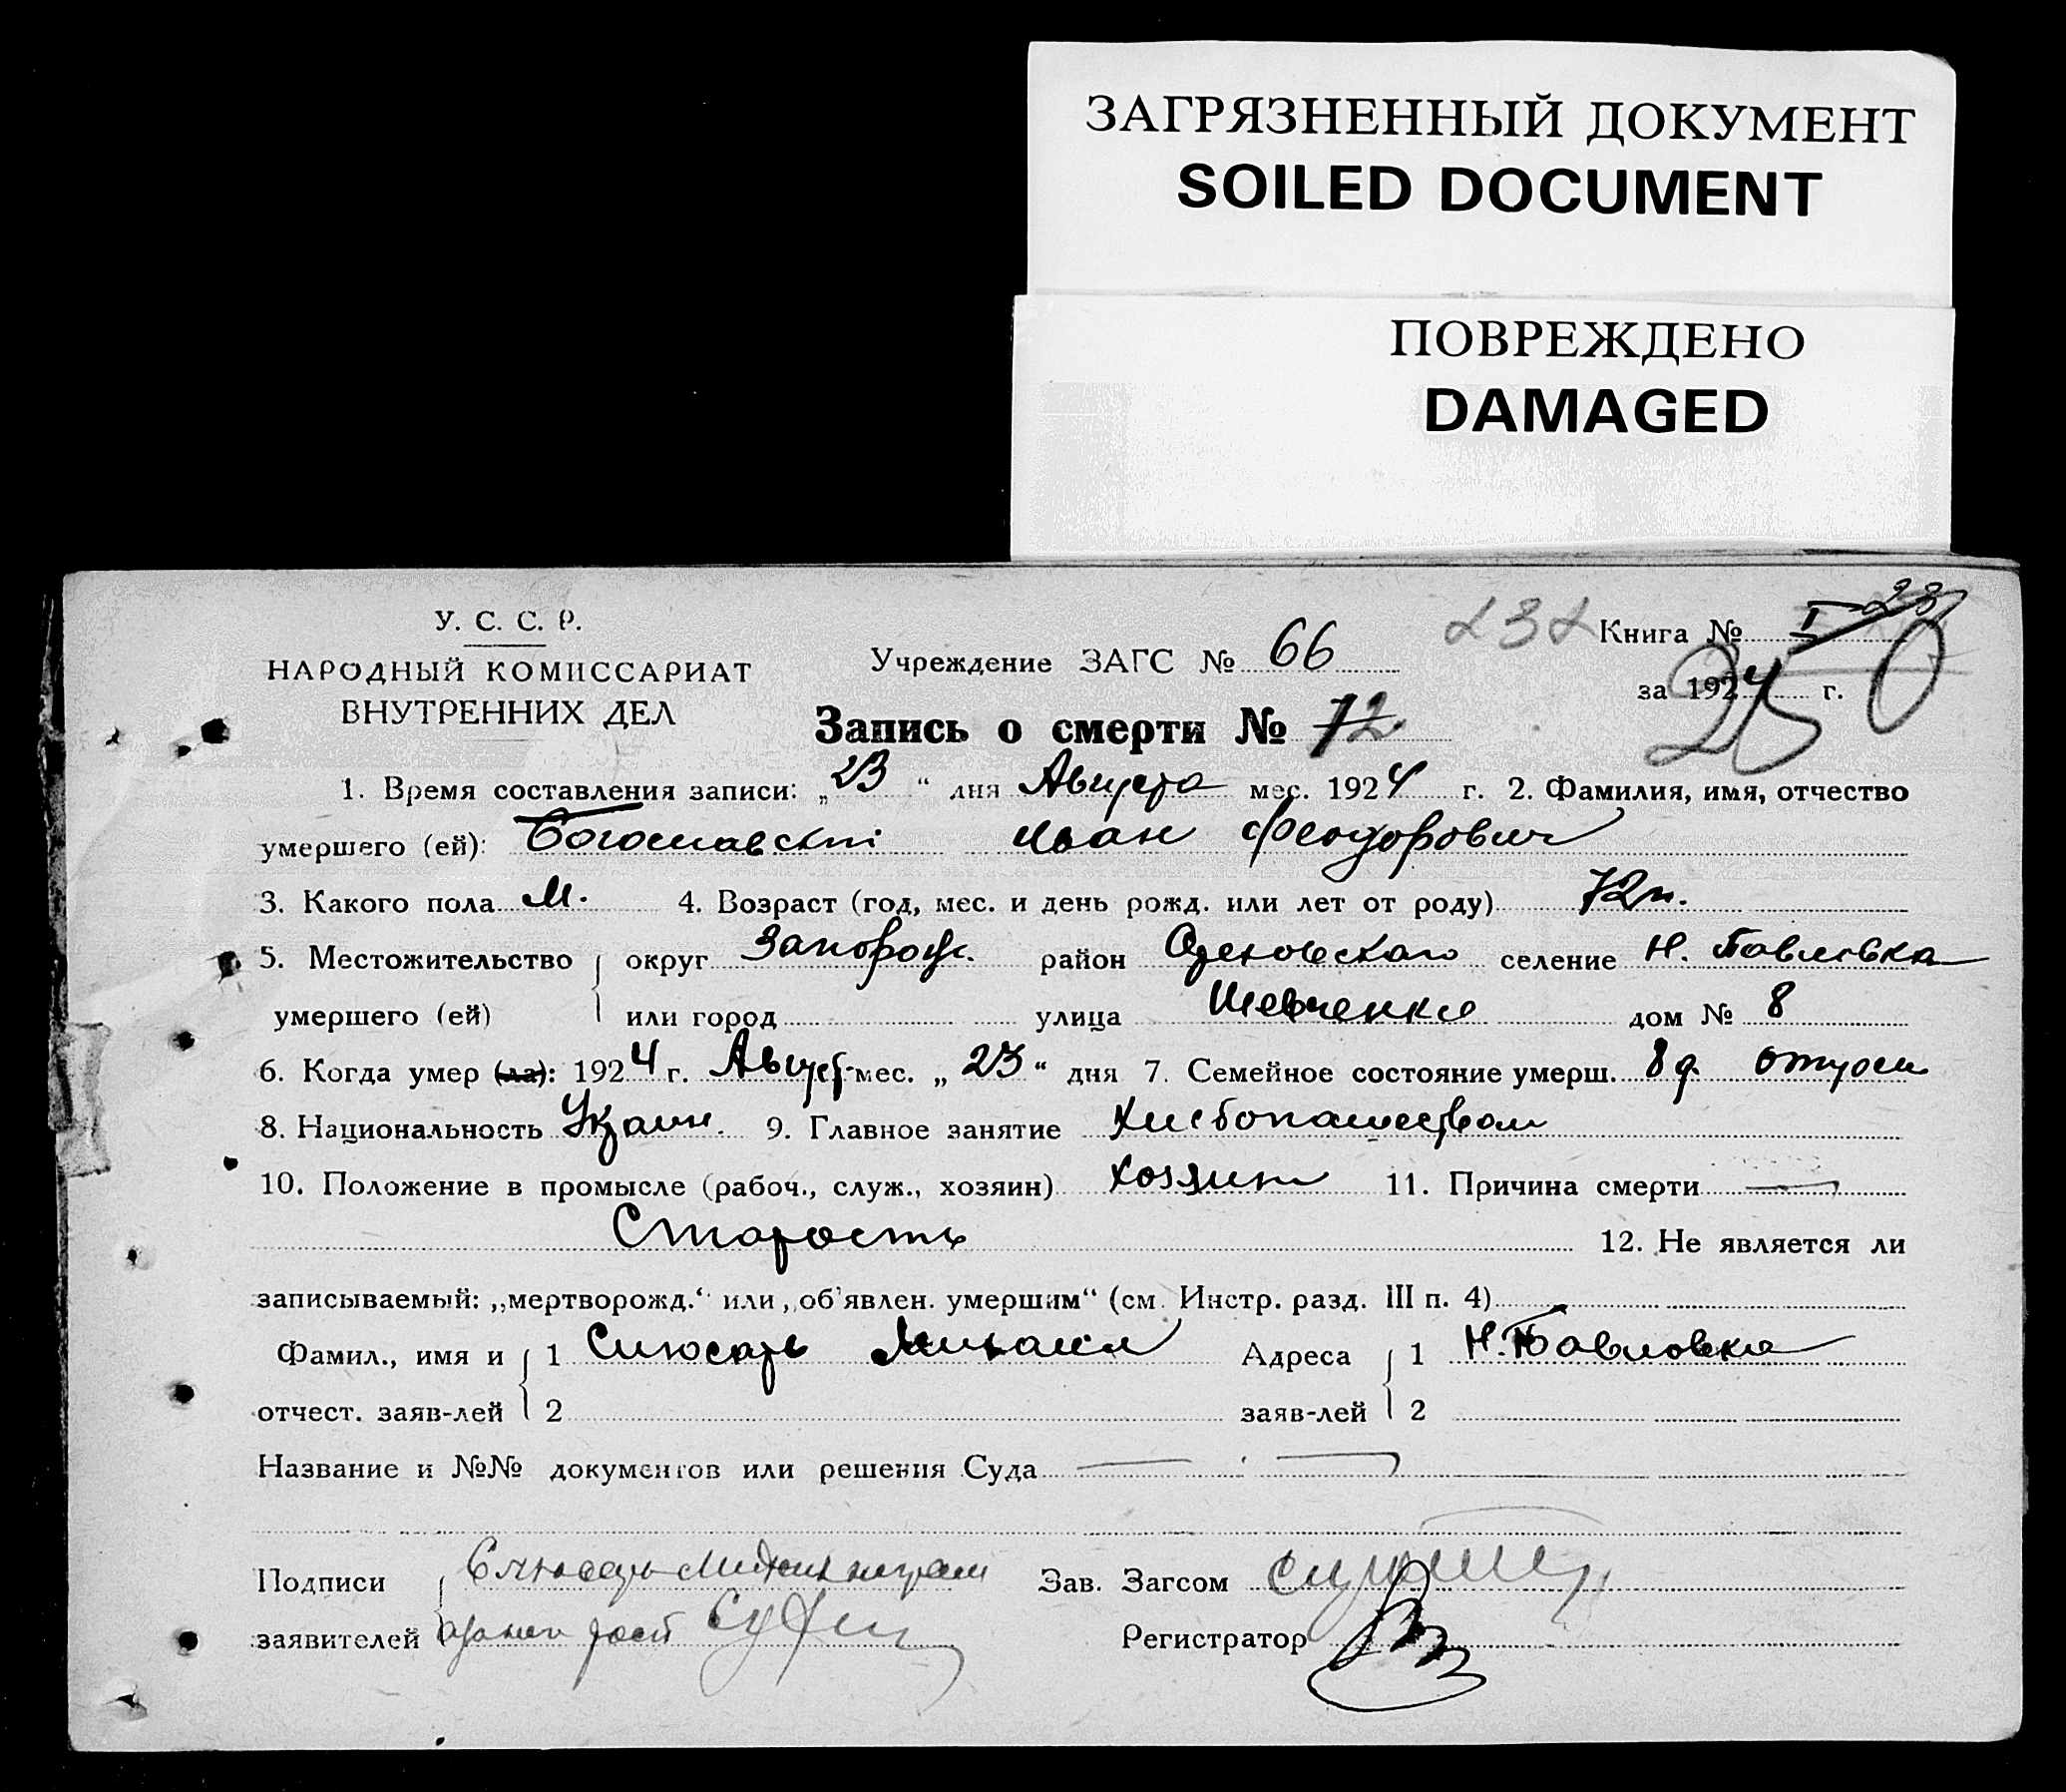 ЗАГРЯЗНЕННЫЙ ДОКУМЕНТ
SOILED DOCUMENT
ПОВРЕЖДЕНО
DAMAGED
У. С. С. Р.
НАРОДНЫЙ КОМИССАРИАТ
ВНУТРЕННИХ ДЕЛ
Учреждение ЗАГС № 66
232
Книга № I-23
за 1924 г.
250
Запись о смерти № 72
1. Время составления записи: „23“ дня Августа мес. 1924 г. 2. Фамилия, имя, отчество
умершего (ей): Богославскі Иван Феодорович
3. Какого пола М. 4. Возраст (год, мес. и день рожд. или лет от роду) 72 л.
5. Местожительство округ Запорож. район селение Н. Павловка
умершего (ей) или город улица Шевченко дом № 8
6. Когда умер (ла): 1924 г. Август мес. „23“ дня 7. Семейное состояние умерш.
8. Национальность Украин. 9. Главное занятие Хлебопашеством
10. Положение в промысле (рабоч., служ., хозяин) хозяин 11. Причина смерти
Старость 12. Не является ли
записываемый: „мертворожд.“ или „об'явлен. умершим“ (см. Инстр. разд. III п. 4)
Фамил., имя и 1 Слюсарь Михаил Адреса 1 Н. Павловка
отчест. заяв-лей 2 заяв-лей 2
Название и №№ документов или решения Суда
Подписи Слюсарь Зав. Загсом
заявителей Регистратор